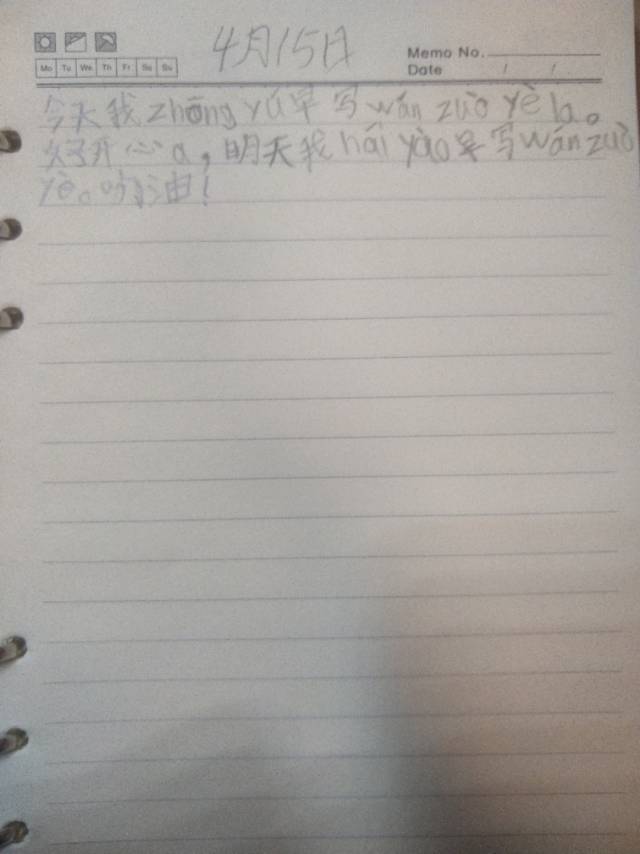 4月15日
Memo No.
Mo Tu We Th Fr Sa Su
Date / /
今天我zhōng yú早写wán zuò yè la。
好开心a，明天我hái yào早写wán zuò
yè。加油！